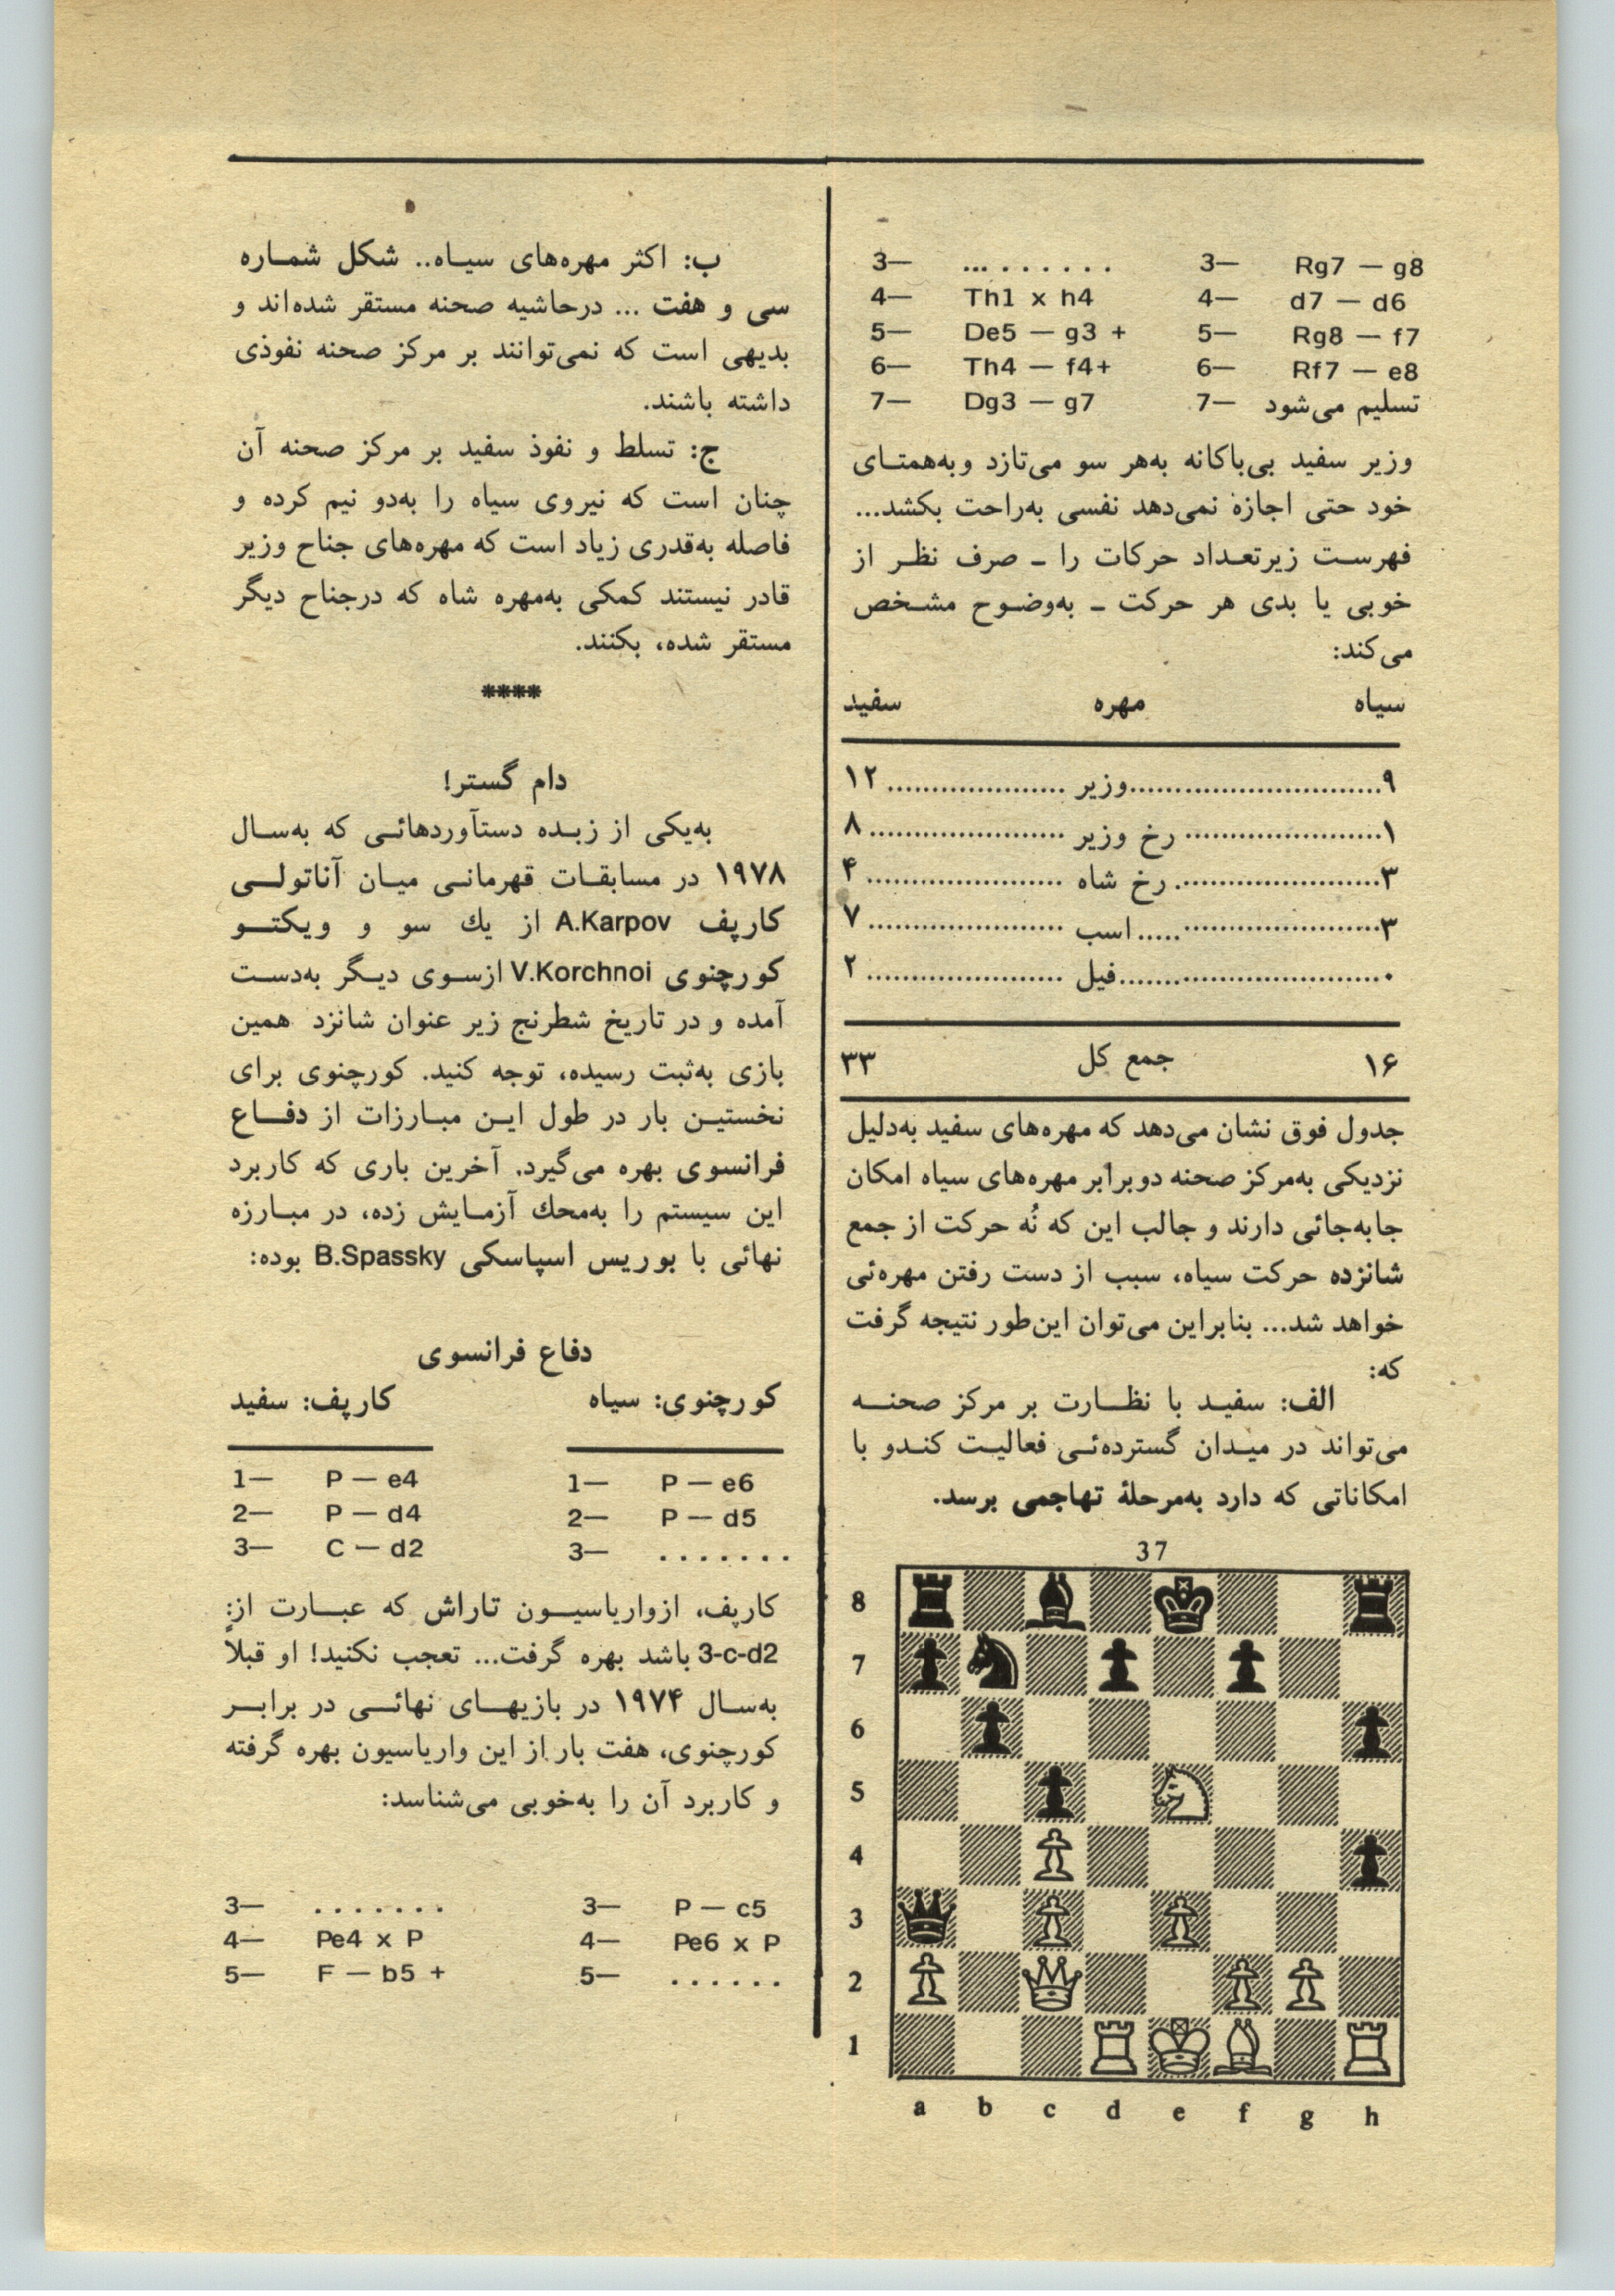 3— ... . . . . . . 3— Rg7 — g8
4— Th1 x h4 4— d7 — d6
5— De5 — g3 + 5— Rg8 — f7
6— Th4 — f4+ 6— Rf7 — e8
7— Dg3 — g7 7— تسلیم می‌شود
وزیر سفید بی‌باکانه به‌هر سو می‌تازد و به‌همتـای
خود حتی اجازه نمی‌دهد نفسی به‌راحت بکشد...
فهرسـت زیرتعـداد حرکات را ـ صرف نظـر از
خوبی یا بدی هر حرکت ـ به‌وضـوح مشـخص
می‌کند:
سیاه مهره سفید
۹..............................وزیر ....................۱۲
۱......................رخ وزیر ......................۸
۳.......................رخ شاه ......................۴
۳...........................اسب ......................۷
۰.............................فیل ......................۲
۱۶ جمع کل ۳۳
جدول فوق نشان می‌دهد که مهره‌های سفید به‌دلیل
نزدیکی به‌مرکز صحنه دوبرابر مهره‌های سیاه امکان
جابه‌جائی دارند و جالب این که نُه حرکت از جمع
شانزده حرکت سیاه، سبب از دست رفتن مهره‌ئی
خواهد شد... بنابراین می‌توان این‌طور نتیجه گرفت
که:
الف: سفیـد با نظـارت بر مرکز صحنـه
می‌تواند در میـدان گسترده‌ئـی فعالیـت کنـدو با
امکاناتی که دارد به‌مرحلهٔ تهاجمی برسد.
37
8
7
6
5
4
3
2
1
a b c d e f g h
ب: اکثر مهره‌های سیـاه.. شکل شمـاره
سی و هفت ... درحاشیه صحنه مستقر شده‌اند و
بدیهی است که نمی‌توانند بر مرکز صحنه نفوذی
داشته باشند.
ج: تسلط و نفوذ سفید بر مرکز صحنه آن
چنان است که نیروی سیاه را به‌دو نیم کرده و
فاصله به‌قدری زیاد است که مهره‌های جناح وزیر
قادر نیستند کمکی به‌مهره شاه که درجناح دیگر
مستقر شده، بکنند.
****
دام گستر!
به‌یکی از زبـده دستآوردهائـی که به‌سـال
۱۹۷۸ در مسابقـات قهرمانـی میـان آناتولـی
کارپف A.Karpov از یك سو و ویکتـو
کورچنوی V.Korchnoi ازسـوی دیـگر به‌دسـت
آمده و در تاریخ شطرنج زیر عنوان شانزد همین
بازی به‌ثبت رسیده، توجه کنید. کورچنوی برای
نخستیـن بار در طول ایـن مبـارزات از دفـاع
فرانسوی بهره می‌گیرد. آخرین باری که کاربرد
این سیستم را به‌محك آزمـایش زده، در مبـارزه
نهائی با بوریس اسپاسکی B.Spassky بوده:
دفاع فرانسوی
کورچنوی: سیاه کارپف: سفید
1— P — e4 1— P — e6
2— P — d4 2— P — d5
3— C — d2 3— . . . . . . .
کارپف، ازواریاسیـون تاراش که عبـارت از:
3-c-d2 باشد بهره گرفت... تعجب نکنید! او قبلاً
به‌سـال ۱۹۷۴ در بازیهـای نهائـی در برابـر
کورچنوی، هفت بار از این واریاسیون بهره گرفته
و کاربرد آن را به‌خوبی می‌شناسد:
3— . . . . . . . 3— P — c5
4— Pe4 x P 4— Pe6 x P
5— F — b5 + 5— . . . . . .